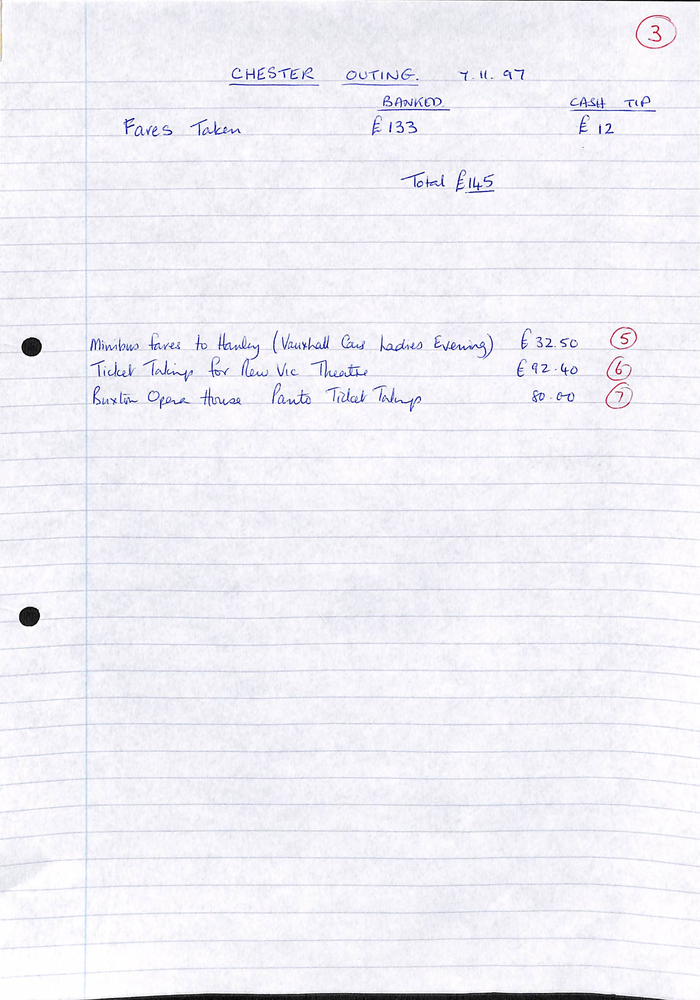 3
CHESTER OUTING. 7.11.97
BANKED CASH TIP
Fares Taken £133 £12
Total £145
Minibus fares to Hanley (Vauxhall Cars Ladies Evening) £32.50 5
Ticket Takings for New Vic Theatre £92.40 6
Buxton Opera House Panto Ticket Takings 80.00 7